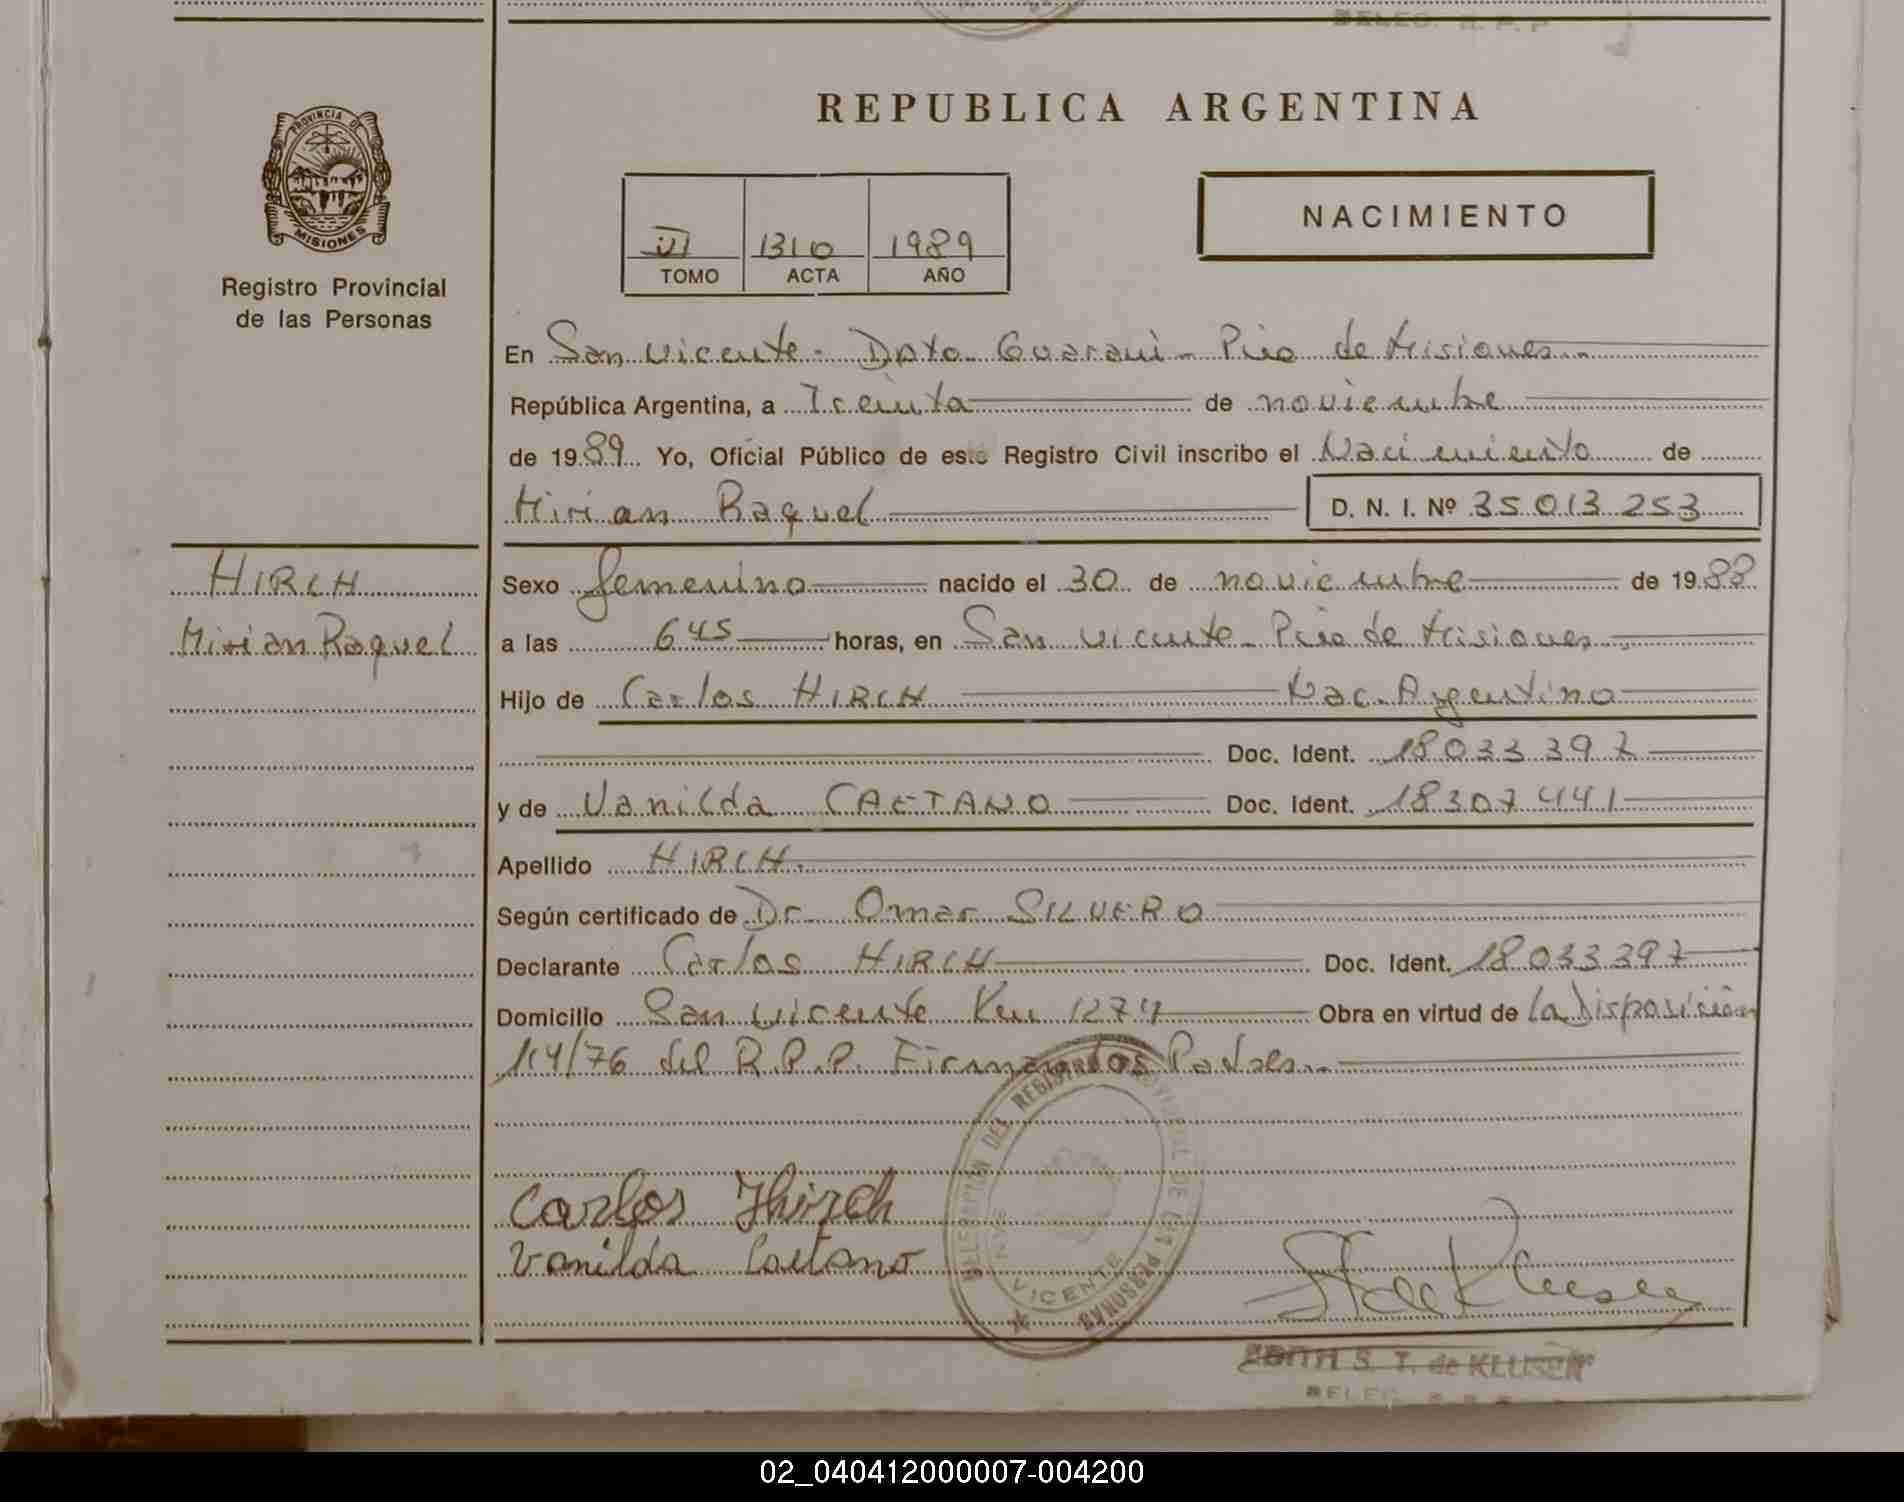 REPUBLICA ARGENTINA
PROVINCIA DE
MISIONES
Registro Provincial
de las Personas
VI 1310 1989
TOMO ACTA AÑO
NACIMIENTO
En San Vicente - Dpto Guaraní - Pcia de Misiones
República Argentina, a Treinta de noviembre
de 1989 Yo, Oficial Público de este Registro Civil inscribo el Nacimiento de
Mirian Raquel D. N. I. Nº 35 013 253
HIRCH
Mirian Raquel
Sexo femenino nacido el 30 de noviembre de 1988
a las 6 45 horas, en San Vicente - Pcia de Misiones
Hijo de Carlos HIRCH Nac. Argentino
Doc. Ident. 18 033 397
y de Vanilda CAETANO Doc. Ident. 18 307 441
Apellido HIRCH.
Según certificado de Dr. Omar SILVERO
Declarante Carlos HIRCH Doc. Ident. 18 033 397
Domicilio San Vicente Km 1274 Obra en virtud de la Disposición
114/76 del R.P.P. Firman los Padres
Carlos Hhirch
Vanilda Caetano
DELEGACION DEL REGISTRO PROVINCIAL DE LAS PERSONAS
VICENTE
S. T. de KLUSER
DELEG.
02_040412000007-004200